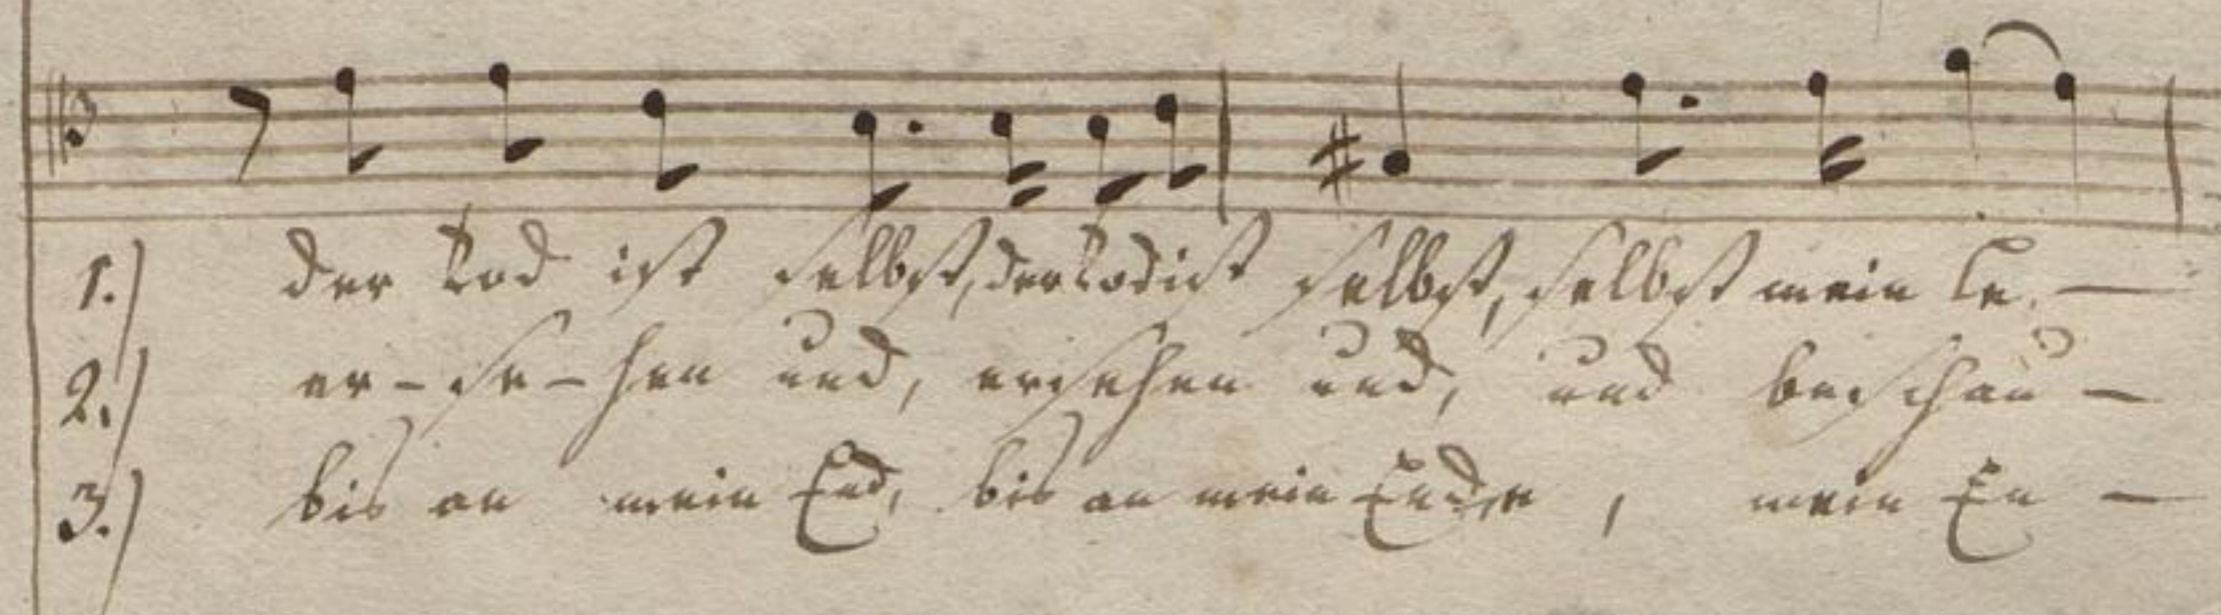 1.) der Tod ist selbst, der Tod ist selbst, selbst mein Le. —
2.) er - se - hen und, ersehen und, und beschau —
3.) bis an mein End, bis an mein Ende, mein En —